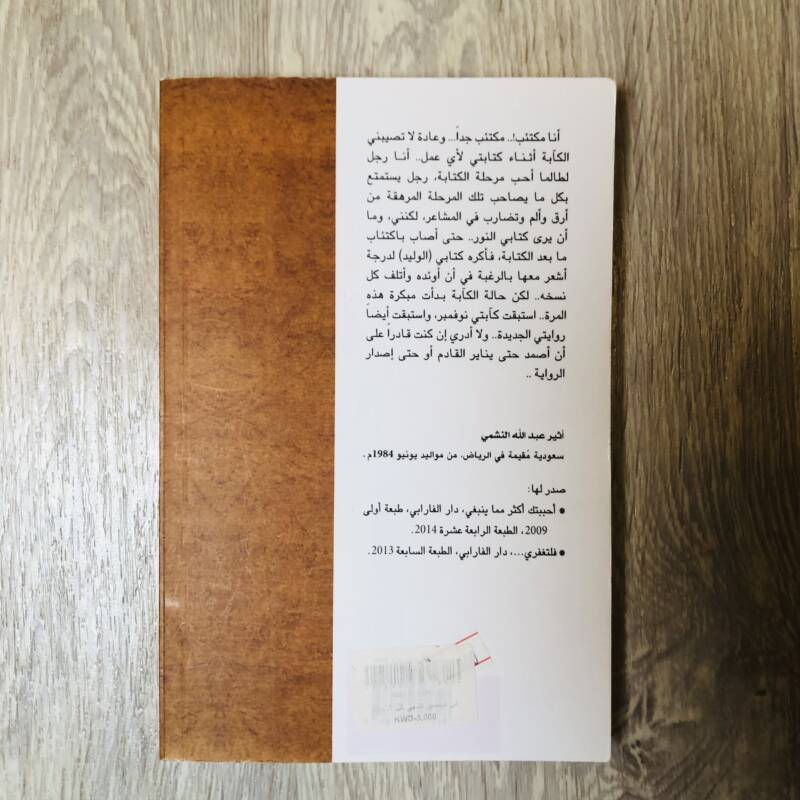 أنا مكتئب!.. مكتئب جداً... وعادة لا تصيبني
الكآبة أثناء كتابتي لأي عمل.. أنا رجل
لطالما أحب مرحلة الكتابة، رجل يستمتع
بكل ما يصاحب تلك المرحلة المرهقة من
أرق وألم وتضارب في المشاعر، لكنني، وما
أن يرى كتابي النور.. حتى أصاب باكتئاب
ما بعد الكتابة، فأكره كتابي (الوليد) لدرجة
أشعر معها بالرغبة في أن أوئده وأتلف كل
نسخه.. لكن حالة الكآبة بدأت مبكرة هذه
المرة.. استبقت كآبتي نوفمبر، واستبقت أيضاً
روايتي الجديدة.. ولا أدري إن كنت قادراً على
أن أصمد حتى يناير القادم أو حتى إصدار
الرواية ..
أثير عبد الله النشمي
سعودية مُقيمة في الرياض، من مواليد يونيو 1984م.
صدر لها:
● أحببتك أكثر مما ينبغي، دار الفارابي، طبعة أولى
2009، الطبعة الرابعة عشرة 2014.
● فلتغفري...، دار الفارابي، الطبعة السابعة 2013.
KWD-3,000